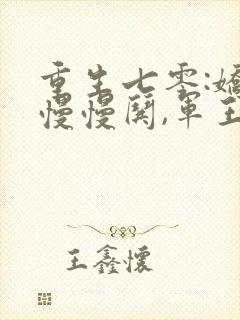 重生七零:嬌
慢慢闖,軍王
王鑫懷